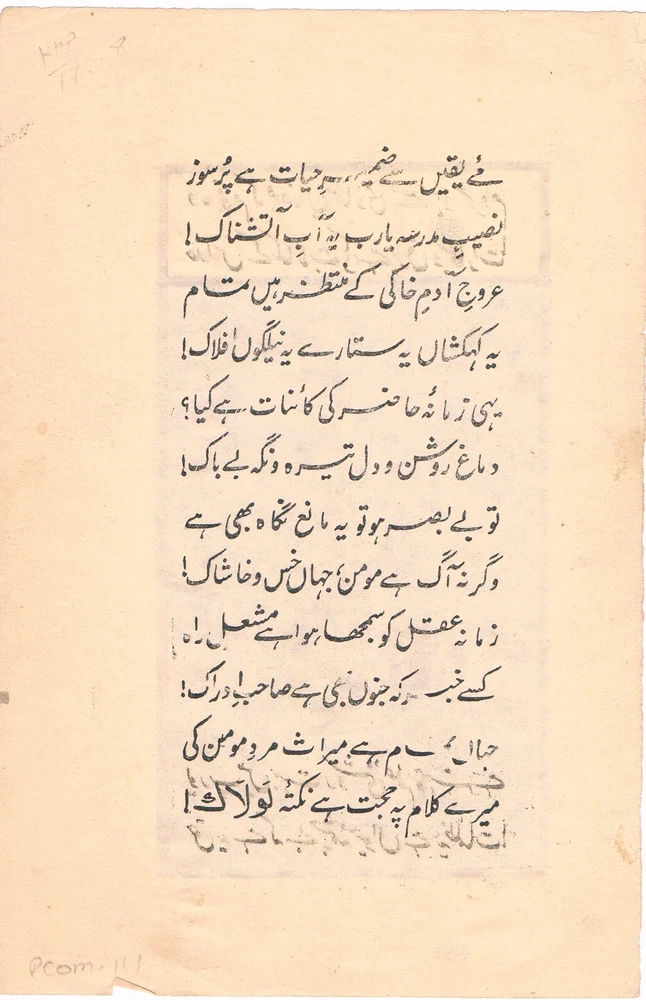 مئے یقیں سے ضمیرِ حیات ہے پُرسوز
نصیبِ مدرسہ یارب یہ آبِ آتشناک!
عروجِ آدمِ خاکی کے منتظر ہیں تمام
یہ کہکشاں یہ ستارے یہ نیلگوں افلاک!
یہی زمانۂ حاضر کی کائنات ہے کیا؟
دماغ روشن و دل تیرہ و نگہ بے باک!
تو بے بصر ہو تو یہ مانعِ نگاہ بھی ہے
وگرنہ آگ ہے مومن، جہاں خس و خاشاک!
زمانہ عقل کو سمجھا ہوا ہے مشعلِ راہ
کسے خبر کہ جنوں بھی ہے صاحبِ ادراک!
جہاں تمام ہے میراث مردِ مومن کی
میرے کلام پہ حجت ہے نکتۂ لولاک!
Pcom. 111